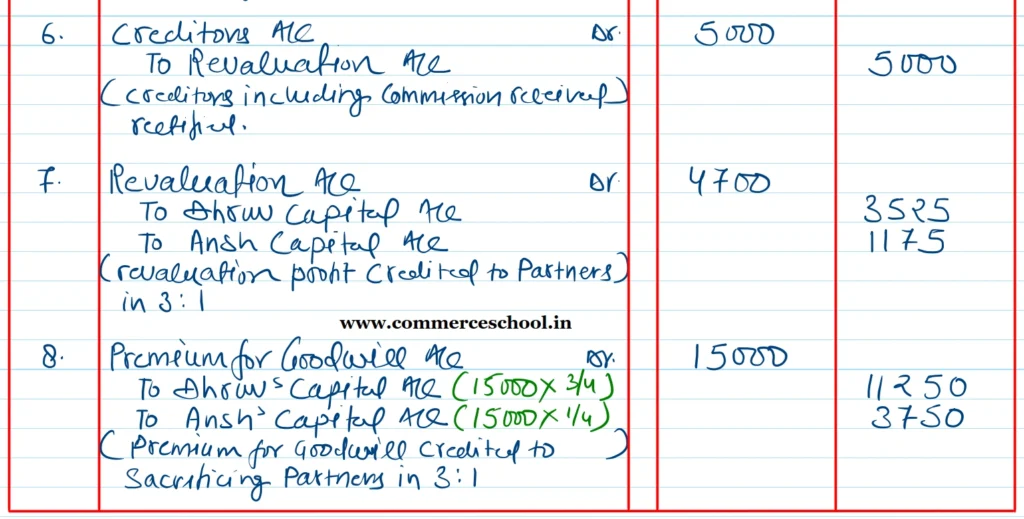 6. Creditors A/c Dr. 5000
To Revaluation A/c 5000
(Creditors including Commission received
rectified.)
7. Revaluation A/c Dr. 4700
To Dhruv Capital A/c 3525
To Ansh Capital A/c 1175
(revaluation profit Credited to Partners
in 3:1)
www.commerceschool.in
8. Premium for Goodwill A/c Dr. 15000
To Dhruv's Capital A/c (15000 x 3/4) 11250
To Ansh's Capital A/c (15000 x 1/4) 3750
(Premium for Goodwill Credited to
Sacrificing Partners in 3:1)